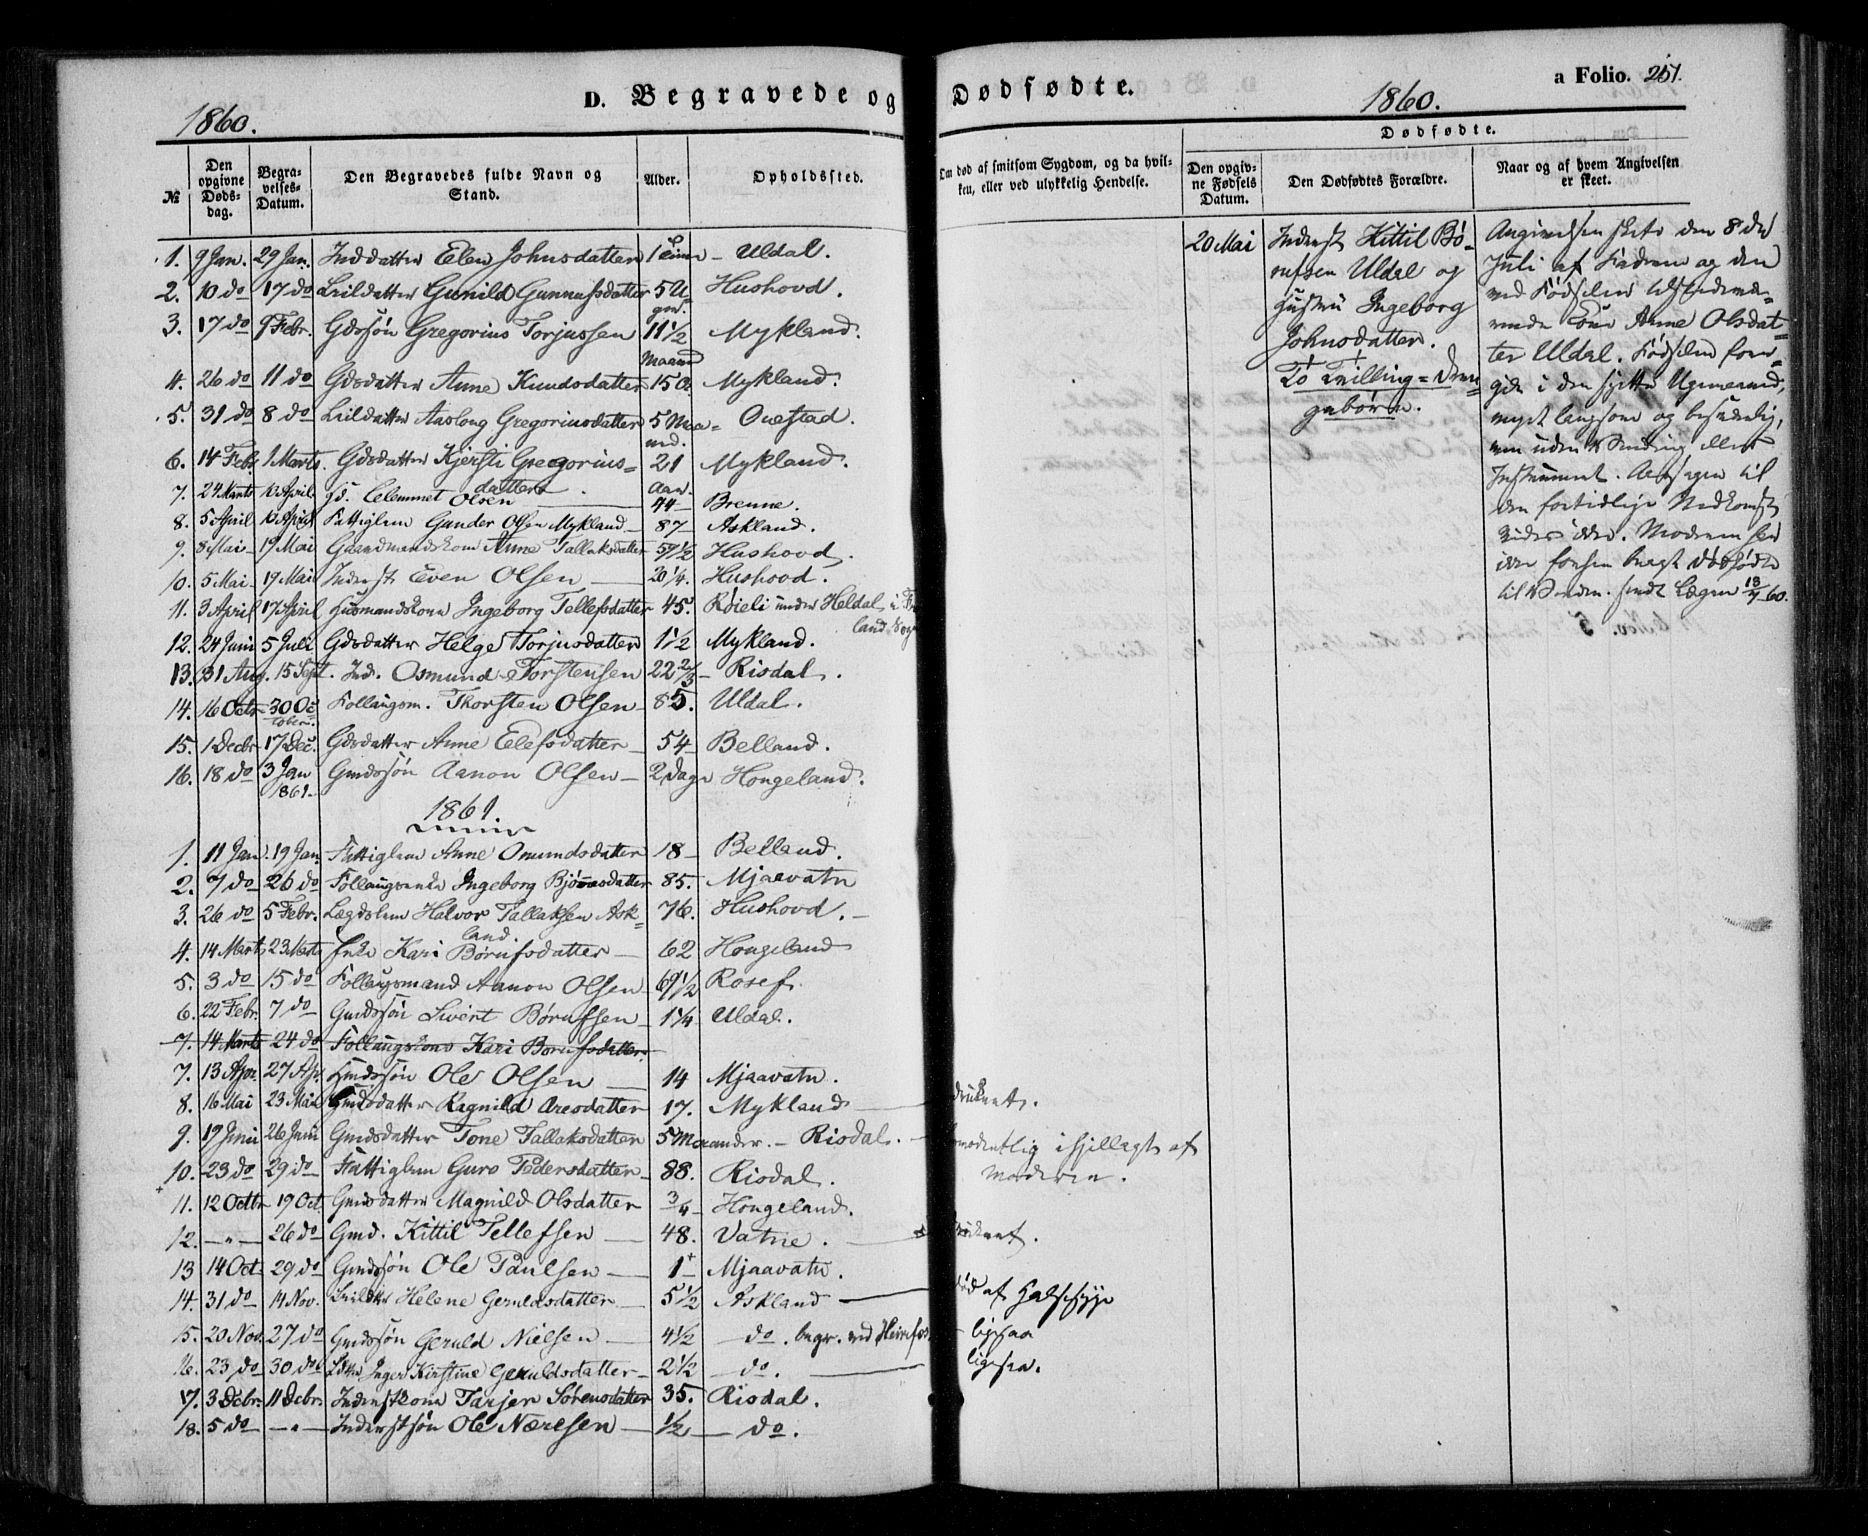 D. Begravede og Dødfødte.
a Folio. 251.
1860.
1860.
Dødfødte.
№
Den opgivne Døds-dag.
Begra-velses-Datum.
Den Begravedes fulde Navn og Stand.
Alder.
Opholdssted.
Om død af smitsom Sygdom, og da hvil-
ken, eller ved ulykkelig Hendelse.
Den opgiv-ne Fødsels Datum.
Den Dødfødtes Forældre.
Naar og af hvem Angivelsen er skeet.
1. 9 Jan. 29 Jan. Inddatter Elen Johnsdatter 1 Uldal.
2. 10 do 17 do Gunild Gunnufsdatter 5 Hushovd.
3. 17 do 9 Febr. Gdssøn Gregorius Torjussen 11 1/2 Maaned Mykland.
4. 26 do 11 do Gdsdatter Anne Knudsdatter 15 Mykland.
5. 31 do 8 do Aaslong Gregoriusdatter 5 Maa-
ned. Ouestad.
6. 14 Febr. 1 Marts. Gdsdatter Kjersti Gregorius=
datter 21 Aar. Mykland.
7. 24 Marts 13 April Gd. Clemmet Olsen 44 Brenne.
8. 5 April 13 April Fattiglem Gunder Olsen Mykland 87 Askland.
9. 8 Mai 19 Mai Gaardmandskone Anne Tallaksdatter 59 1/2 Hushovd.
10. 5 Mai 19 Mai Inderst Even Olsen 20 1/4. Hushovd.
11. 3 April 17 April Husmandskone Ingeborg Tellefsdatter 45. Røieli under Heldal i
land
12. 24 Juni 5 Juli Gdsdatter Helge Torjusdatter 1 1/2 Mykland.
13. 31 Aug. 15 Sept. Ind. Osmund Torstensen 22 2/3 Risdal.
14. 16 Octr 30 Oc
tober. Follaugsm. Thorsten Olsen 85. Uldal.
15. 1 Decbr 17 Dec. Gdsdatter Anne Elefsdatter 54 Belland.
16. 18 do 3 Jan 1861. Gmdssøn Aanon Olsen 2 Dage Hongeland.
1861.
1. 11 Jan. 19 Jan. Fattiglem Anne Omundsdatter 18 Belland.
2. 7 do 26 do Follaugsenke Ingeborg Bjørnsdatter 85. Mjaavatn
3. 26 do 5 Febr. Lægdslem Halvor Tallaksen Ask=
land. 76. Hushovd.
4. 14 Marts 23 Marts Enke Kari Børufsdatter 62 Hongeland
5. 3 do 15 do Follaugsmand Aanon Olsen 69 1/2 Rosef.
6. 22 Febr. 7 do Gmdssøn Sivert Børufsen 1 1/4 Uldal.
7. 14 Marts 24 do Follaugskone Kari Børufsdatter
7. 13 Apr. 27 Ap. Gmdssøn Ole Olsen 14 Mjaavatn.
8. 16 Mai 23 Mai Gmdsdatter Ragnild Aresdatter 17. Mykland druknet.
9. 19 Juni 26 Juni Gmdsdatter Tone Tallaksdatter 5 Maaneder. Risdal. formodentlig ihjellagt af
Moderen.
10. 23 do 29 do Fattiglem Guro Pedersdatter 88. Risdal.
11. 12 Octbr 19 Oct. Gmdsdatter Magnild Olsdatter 3/4 Hongeland.
12. — 26 do Gmd. Kittil Tellefsen 48. Vatne. druknet.
13 14 Oct 29 do Gmdssøn Ole Paulsen 1 Mjaavatn.
14. 31 do 14 Nov. Helene Geruldsdatter 5 1/2 Askland død af Halssyge
15. 20 Nov. 27 do Gmdssøn Geruld Nielsen 4 1/2 do. begr. ved ligesaa
16. 23 do 30 do Inger Kirstine Geruldsdatter 2 1/2 do. ligesaa.
17. 3 Decbr. 11 Decbr. Inderstkone Tarjer Sørensdatter 35. Risdal.
18. 5 do — Inderstsøn Ole Nærefsen 1/2 do.
20 Mai
Inderst Kittil Bø-
rufsen Uldal og
Hustru Ingeborg
Johnsdatter.
To Tvilling=Dren=
gebørn.
Angivelsen skete den 8de
Juli af Faderen og den
ved Fødselen tilstedevæ-
rende Kone Anne Olsdat=
ter Uldal. Fødselen fore-
gik i den sjette Maaned,
meget langsom og besværlig,
men uden Vending eller
Instrument. Aarsagen til
den fortidlige Nedkomst
vides ikke. Moderen har
ikke forhen bragt dødfødte
til Verden. sendt Lægen 13/7 60.